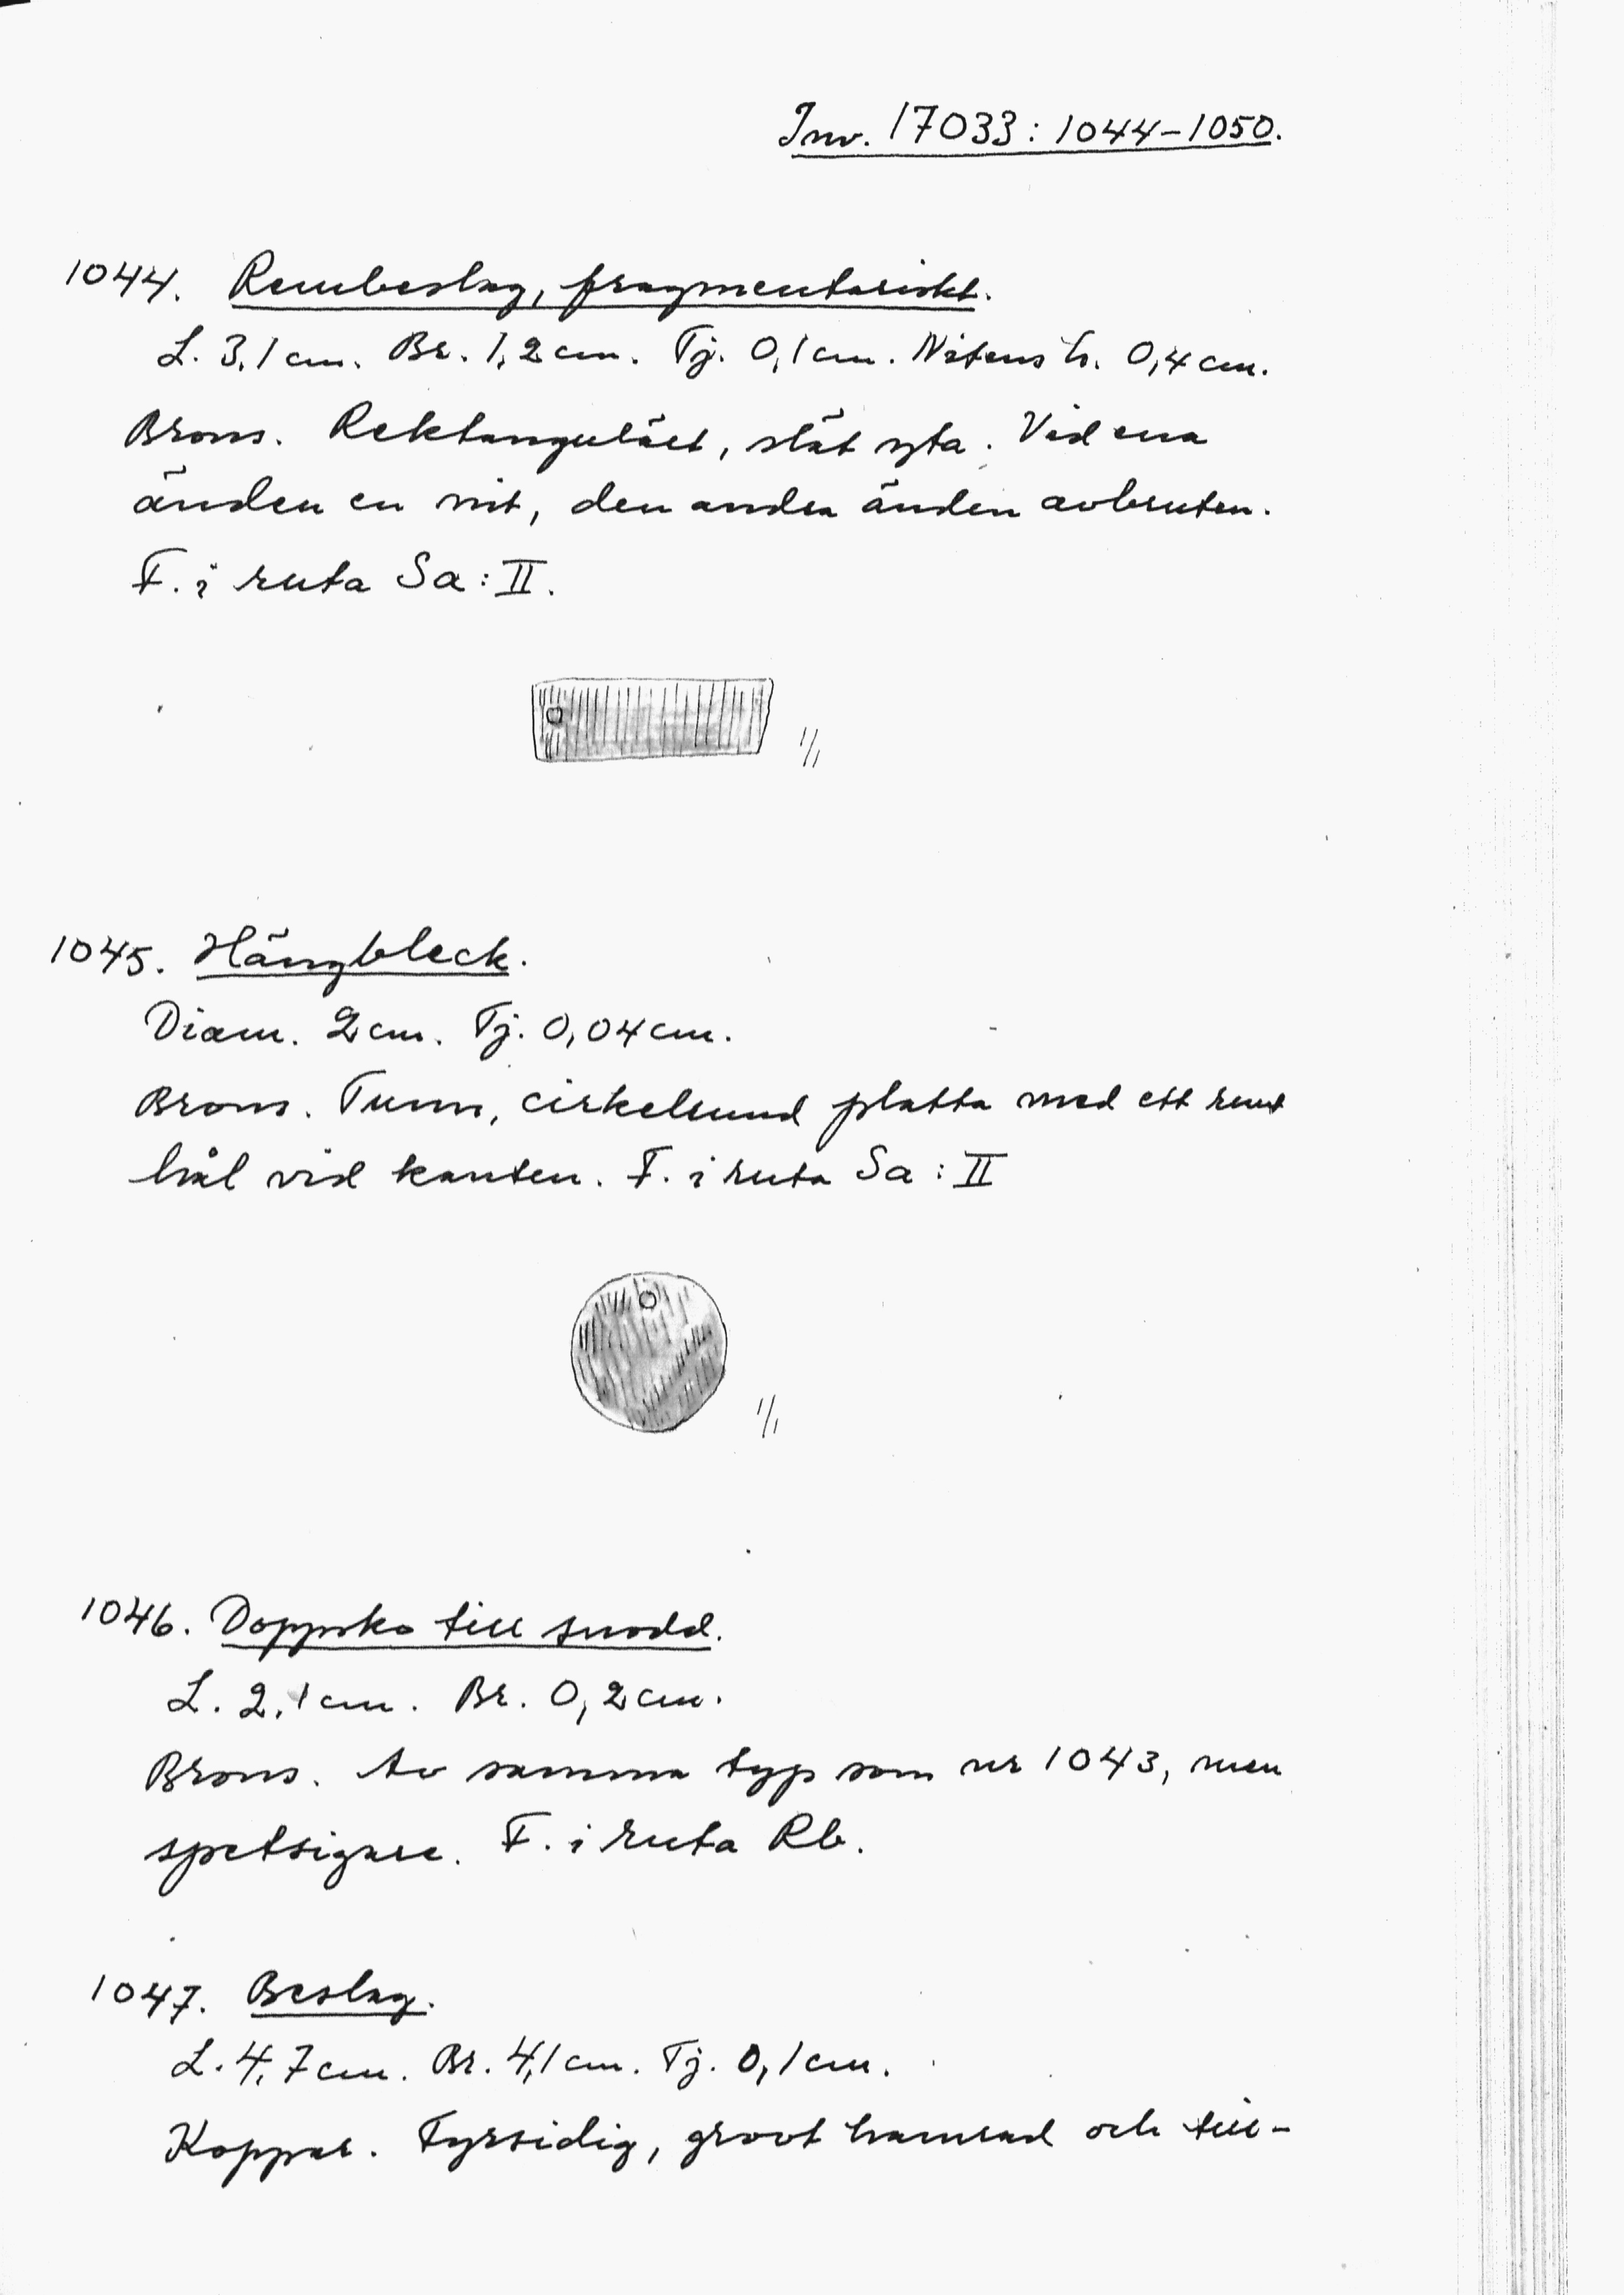 Inv. 17033: 1044-1050.
1044. Rembeslag, fragmentariskt.
L. 3,1 cm. Br. 1,2 cm. Tj. 0,1 cm. Nitens h. 0,4 cm.
Brons. Rektangulärt, slät yta. Vid ena
änden en nit, den andra änden avbruten.
F. i ruta Sa: II.
1/1
1045. Hängbleck.
Diam. 2 cm. Tj. 0,04 cm.
Brons. Tunn, cirkelrund platta med ett runt
hål vid kanten. F. i ruta Sa: II
1/1
1046. Doppsko till snodd.
L. 2,1 cm. Br. 0,2 cm.
Brons. Av samma typ som nr 1043, men
spetsigare. F. i ruta Rb.
1047. Beslag.
L. 4,7 cm. Br. 4,1 cm. Tj. 0,1 cm.
Koppar. Fyrsidig, grovt hamrad och till-